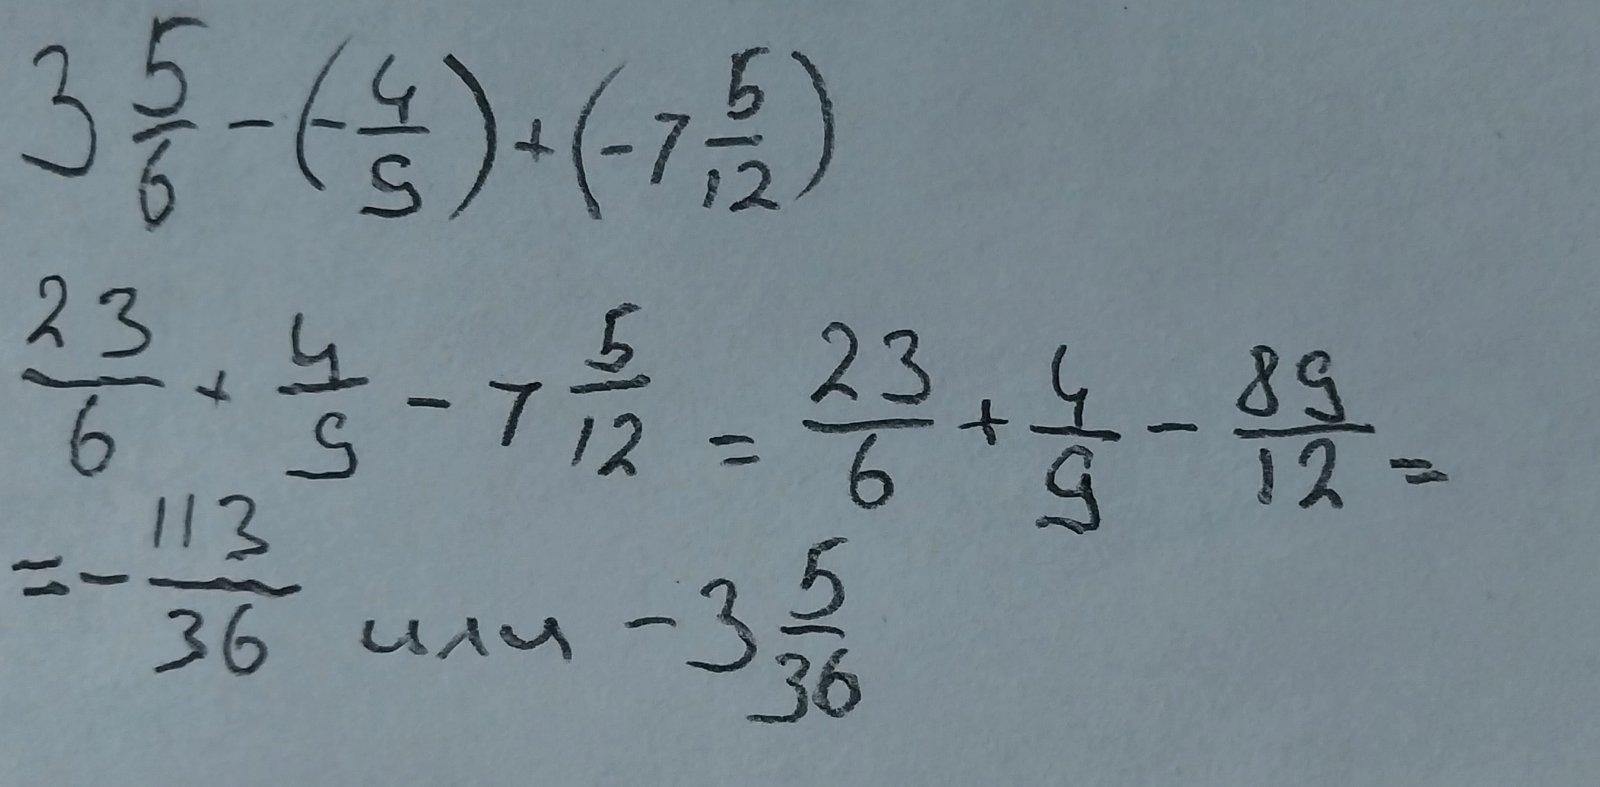 3 5/6 - (- 4/9) + (-7 5/12)
23/6 + 4/9 - 7 5/12 = 23/6 + 4/9 - 89/12 =
= - 113/36 или - 3 5/36